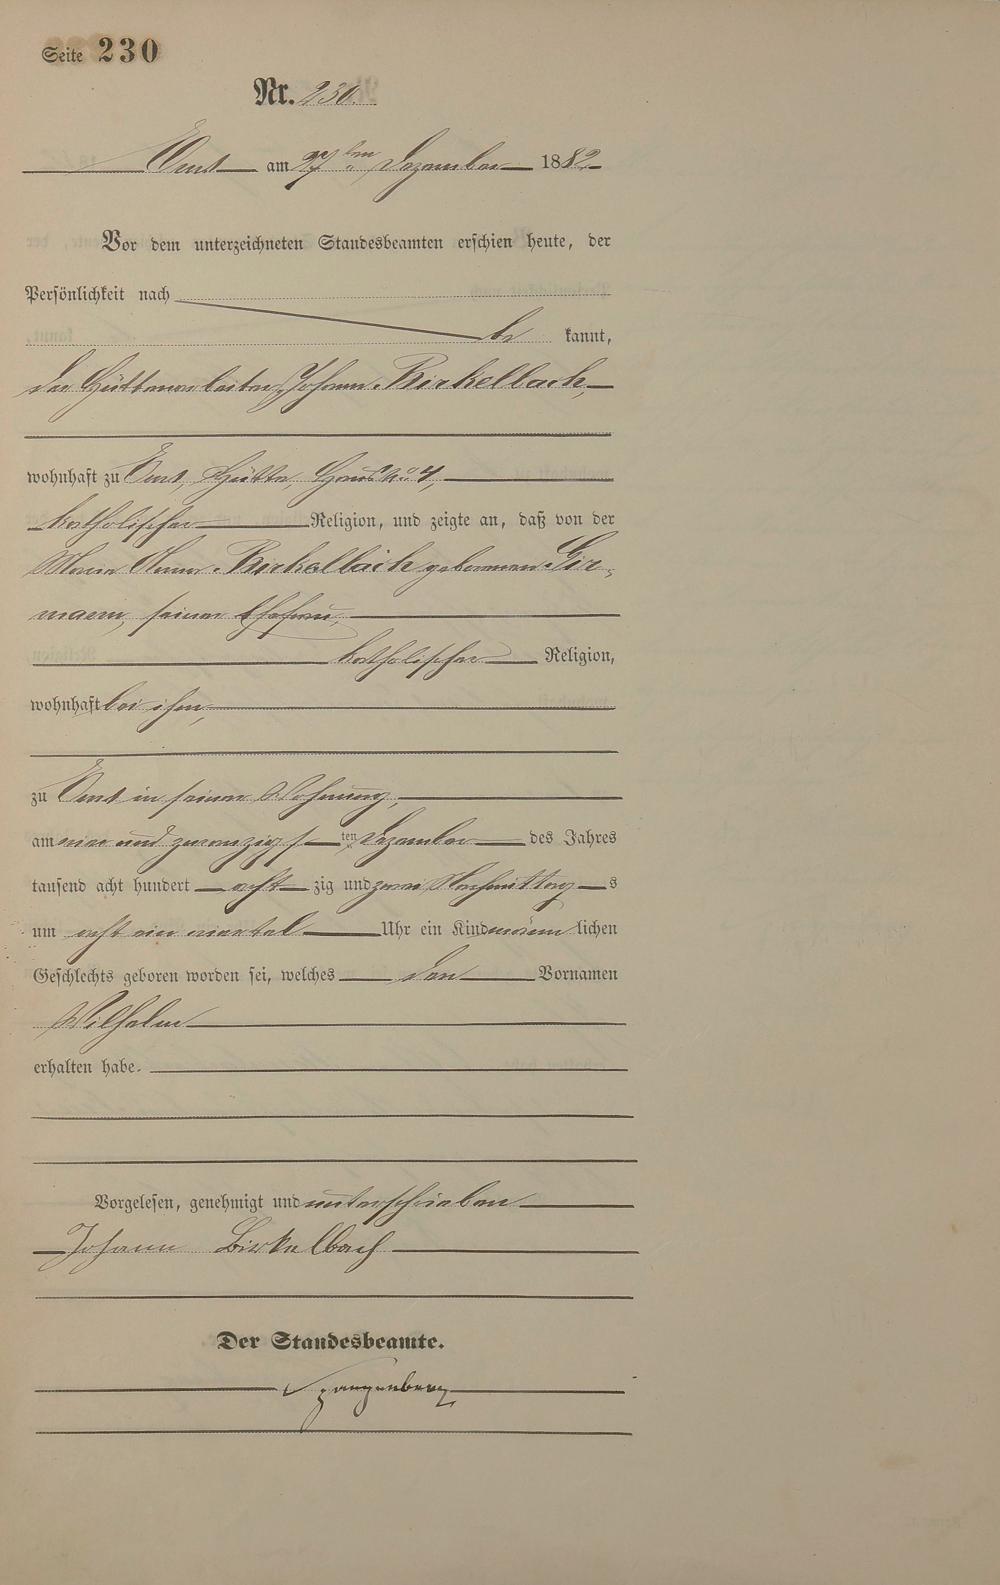 Seite 230
Nr. 230.
Ems am 27ten Dezember 1882
Vor dem unterzeichneten Standesbeamten erschien heute, der
Persönlichkeit nach
be kannt,
der Hüttenarbeiter Johann Birkelbach,
wohnhaft zu Ems, Hütte, Haus No 4,
katholischer Religion, und zeigte an, daß von der
Maria Anna Birkelbach geborenen Gir-
mann, seiner Ehefrau,
katholischer Religion,
wohnhaft bei ihm,
zu Ems in seiner Wohnung,
am ein und zwanzigs ten Dezember des Jahres
tausend acht hundert acht zig und zwei Nachmittag s
um acht ein viertel Uhr ein Kind männ lichen
Geschlechts geboren worden sei, welches den Vornamen
Wilhelm
erhalten habe.
Vorgelesen, genehmigt und unterschrieben
Johann Birkelbach
Der Standesbeamte.
Spangenberg